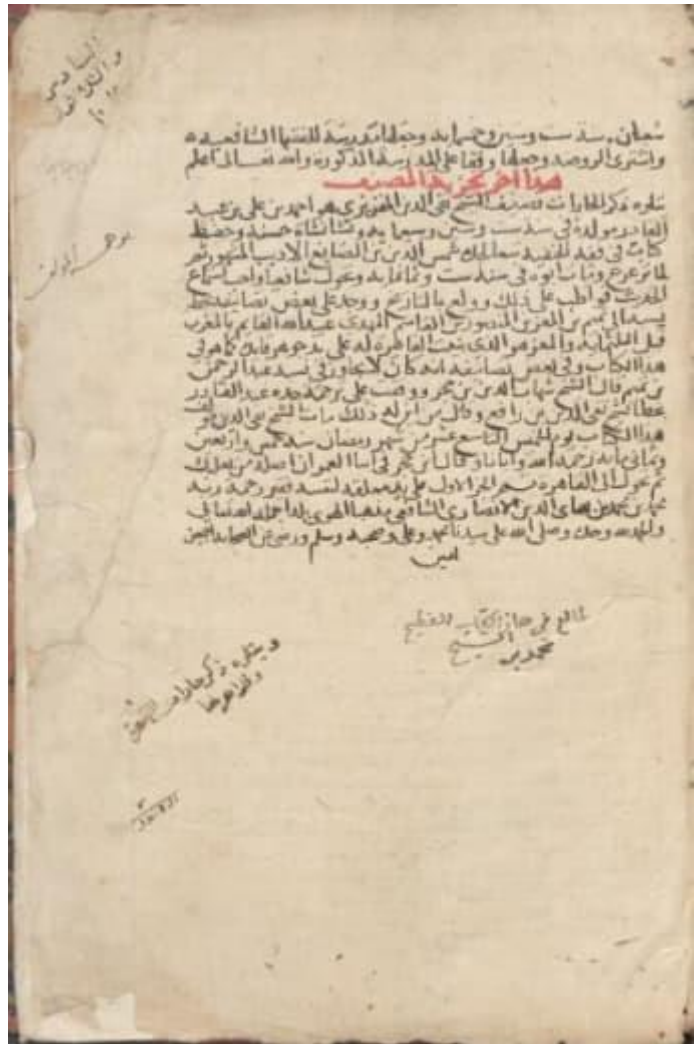 شعبان سنة ست وستين وخمسمايه وجعلها مدرسة للفقها الشافعيه
واشترى الروضه وجعلها وقفا على المدرسة المذكورة والله تعالى اعلم
هذا اخر تجزية المصنف
يتلوه ذكر الحارات تصنيف الشيخ تقى الدين المقريزى هو احمد بن على بن عبد
القادر مولده فى سنة ست وستين وسبعمايه ونشا نشاة حسنة وحفظ
كتابا فى فقه الحنفيه شمس الدين بن الصايغ الاديب المشهور ثم
لما ترعرع ومات ابوه فى سنة ست وثمانمايه وتحول شافعيا واحب اتباع
الحديث فواظب على ذلك وولع بالتاريخ ووجد على بعض تصانيفه بخط
تميم بن المعز بن المنصور بن القاسم المهدى عبد الله القايم بالمغرب
قبل الثلثمايه والمعز هو الذى بنيت القاهره له على يد جوهر كما هو فى
هذا الكتاب وفى بعض تصانيفه انه كان لا يجاوز فى نسبه عبد الرحمن
بن تميم قال الشيخ شهاب الدين بن حجر ووقفت على ترجمة جده عبد القادر
بخط الشيخ تقى الدين بن رافع وقال من اين له ذلك مات الشيخ تقى الدين
هذا الكتاب يوم الخميس التاسع عشر من شهر رمضان سنة خمس واربعين
وثمانى مايه رحمه الله وايانا وقال بن حجر فى انبا الغمر ان اصله من بعلبك
ثم تحول الى القاهره الجز الاول على يد معلقه لنفسه فقير رحمة ربه
محمد بن محمد بن الدين الانصارى الشافعى مذهبا
والحمد لله وحده وصلى الله على سيدنا محمد وعلى وصحبه وسلم ورضى عن الصحابه اجمعين
امين
طالع فى هذا الكتاب
محمد بن الشيخ
ويتلوه ذكر حارات القاهرة
وظواهرها